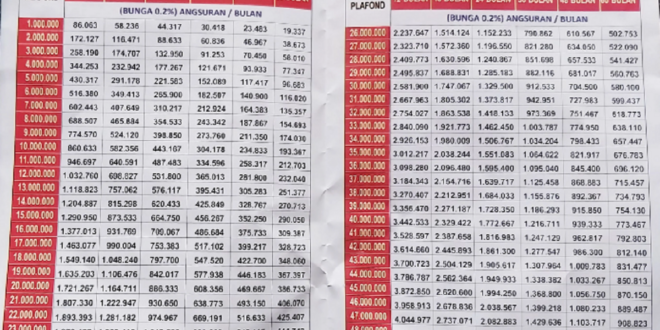 (BUNGA 0.2%) ANGSURAN / BULAN
1.000.000 86.063 58.236 44.317 30.418 23.483 19.337
2.000.000 172.127 116.471 88.633 60.836 46.967 38.673
3.000.000 258.190 174.707 132.950 91.253 70.450 58.010
4.000.000 344.253 232.942 177.267 121.671 93.933 77.347
5.000.000 430.317 291.178 221.583 152.089 117.417 96.683
6.000.000 516.380 349.413 265.900 182.507 140.900 116.020
7.000.000 602.443 407.649 310.217 212.924 164.383 135.357
8.000.000 688.507 465.884 354.533 243.342 187.867 154.693
9.000.000 774.570 524.120 398.850 273.760 211.350 174.030
10.000.000 860.633 582.356 443.167 304.178 234.833 193.367
11.000.000 946.697 640.591 487.483 334.596 258.317 212.703
12.000.000 1.032.760 698.827 531.800 365.013 281.800 232.040
13.000.000 1.118.823 757.062 576.117 395.431 305.283 251.377
14.000.000 1.204.887 815.298 620.433 425.849 328.767 270.713
15.000.000 1.290.950 873.533 664.750 456.267 352.250 290.050
16.000.000 1.377.013 931.769 709.067 486.684 375.733 309.387
17.000.000 1.463.077 990.004 753.383 517.102 399.217 328.723
18.000.000 1.549.140 1.048.240 797.700 547.520 422.700 348.060
19.000.000 1.635.203 1.106.476 842.017 577.938 446.183 367.397
20.000.000 1.721.267 1.164.711 886.333 608.356 469.667 386.733
21.000.000 1.807.330 1.222.947 930.650 638.773 493.150 406.070
22.000.000 1.893.393 1.281.182 974.967 669.191 516.633 425.407
PLAFOND
(BUNGA 0.2%) ANGSURAN / BULAN
26.000.000 2.237.647 1.514.124 1.152.233 790.862 610.567 502.753
27.000.000 2.323.710 1.572.360 1.196.550 821.280 634.050 522.090
28.000.000 2.409.773 1.630.596 1.240.867 851.698 657.533 541.427
29.000.000 2.495.837 1.688.831 1.285.183 882.116 681.017 560.763
30.000.000 2.581.900 1.747.067 1.329.500 912.533 704.500 580.100
31.000.000 2.667.963 1.805.302 1.373.817 942.951 727.983 599.437
32.000.000 2.754.027 1.863.538 1.418.133 973.369 751.467 618.773
33.000.000 2.840.090 1.921.773 1.462.450 1.003.787 774.950 638.110
34.000.000 2.926.153 1.980.009 1.506.767 1.034.204 798.433 657.447
35.000.000 3.012.217 2.038.244 1.551.083 1.064.622 821.917 676.783
36.000.000 3.098.280 2.096.480 1.595.400 1.095.040 845.400 696.120
37.000.000 3.184.343 2.154.716 1.639.717 1.125.458 868.883 715.457
38.000.000 3.270.407 2.212.951 1.684.033 1.155.876 892.367 734.793
39.000.000 3.356.470 2.271.187 1.728.350 1.186.293 915.850 754.130
40.000.000 3.442.533 2.329.422 1.772.667 1.216.711 939.333 773.467
41.000.000 3.528.597 2.387.658 1.816.983 1.247.129 962.817 792.803
42.000.000 3.614.660 2.445.893 1.861.300 1.277.547 986.300 812.140
43.000.000 3.700.723 2.504.129 1.905.617 1.307.964 1.009.783 831.477
44.000.000 3.786.787 2.562.364 1.949.933 1.338.382 1.033.267 850.813
45.000.000 3.872.850 2.620.600 1.994.250 1.368.800 1.056.750 870.150
46.000.000 3.958.913 2.678.836 2.038.567 1.399.218 1.080.233 889.487
47.000.000 4.044.977 2.737.071 2.082.883 1.429.636 1.103.717 908.823